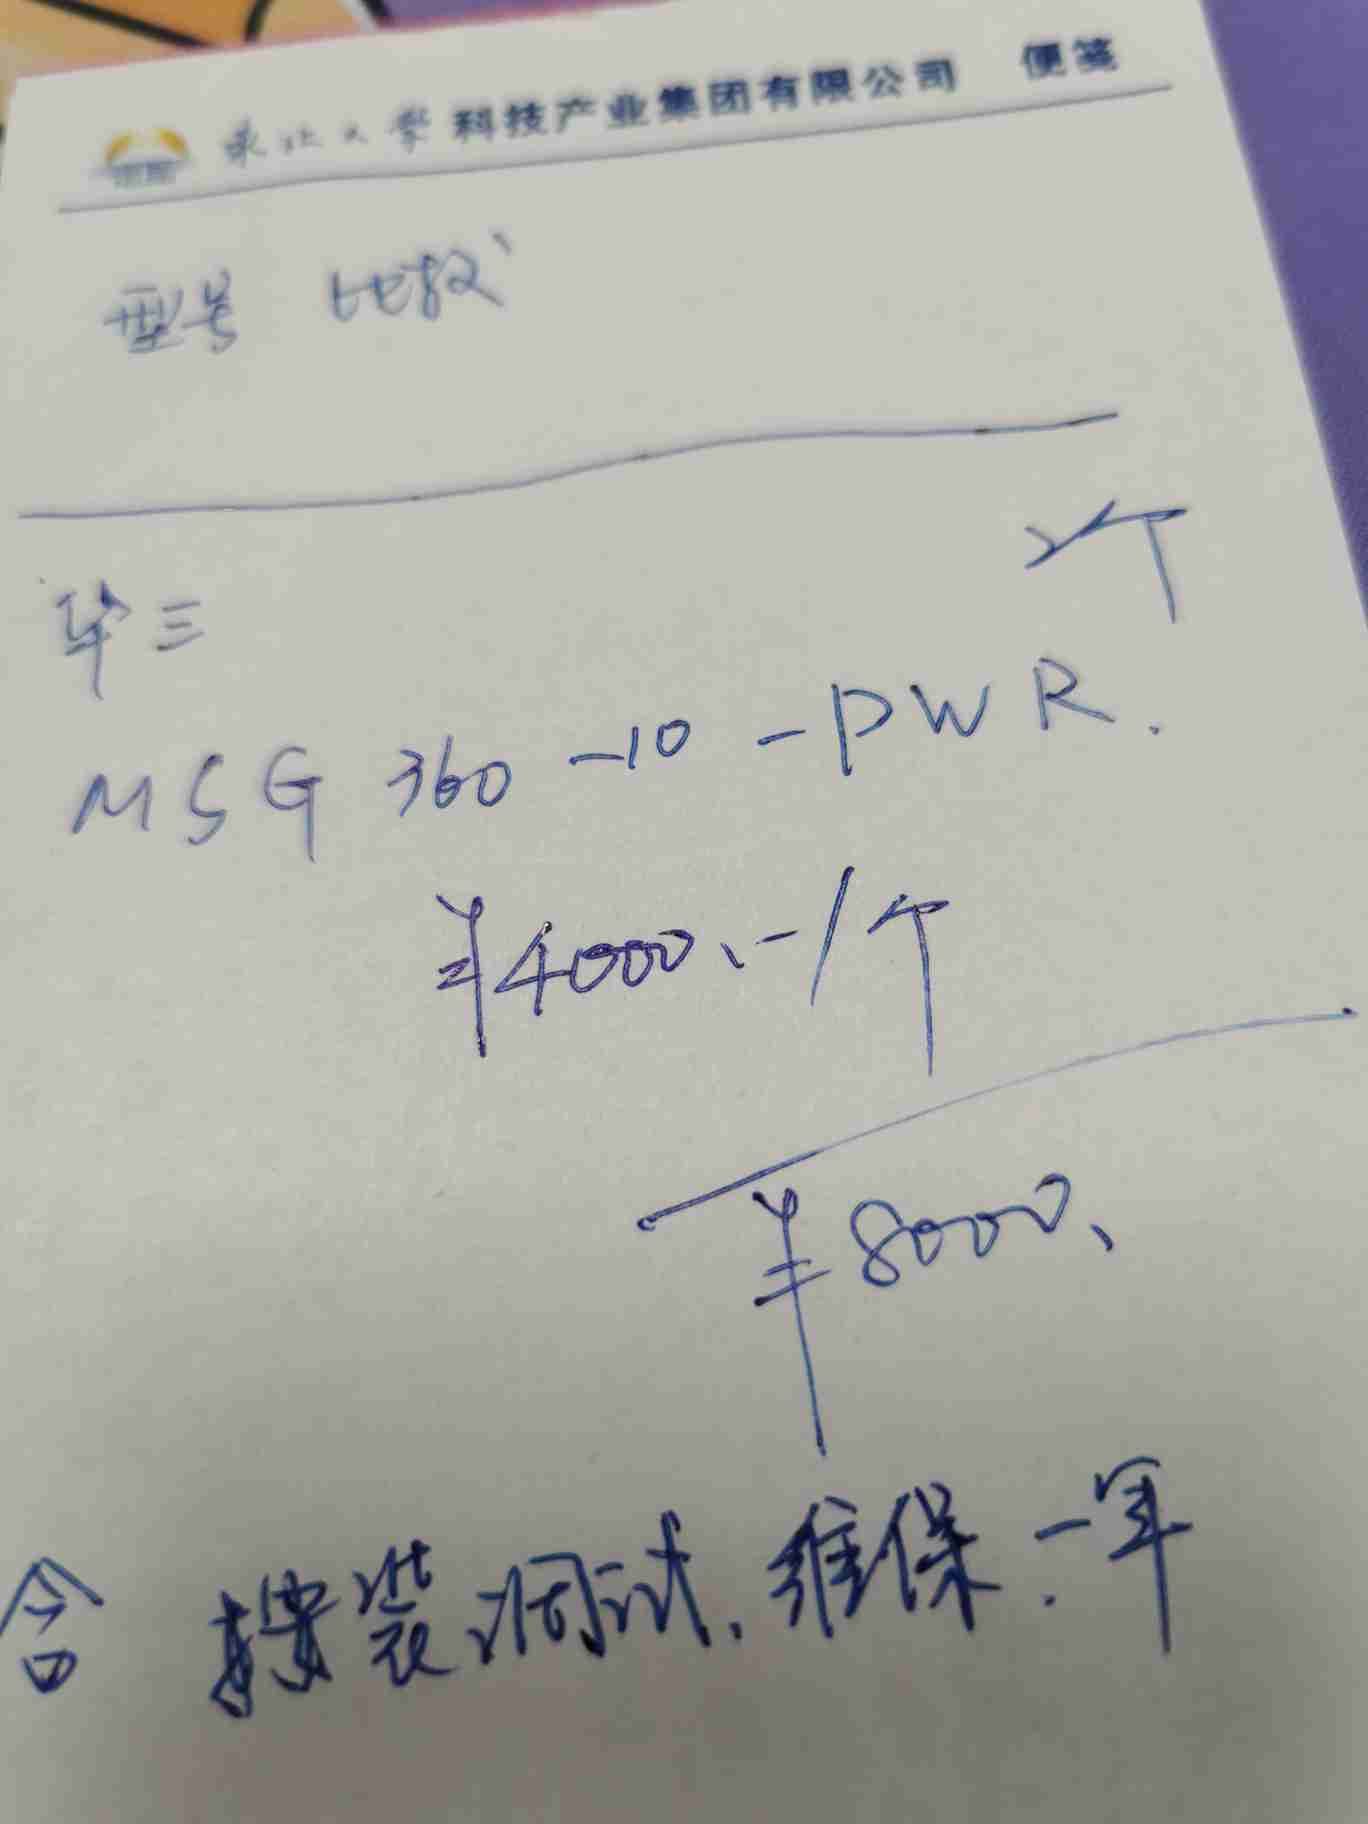 东北大学科技产业集团有限公司 便笺
型号 比较
2个
华三
MSG 360-10-PWR.
¥4000.-/个
¥8000.
含 安装调试、维保.一年